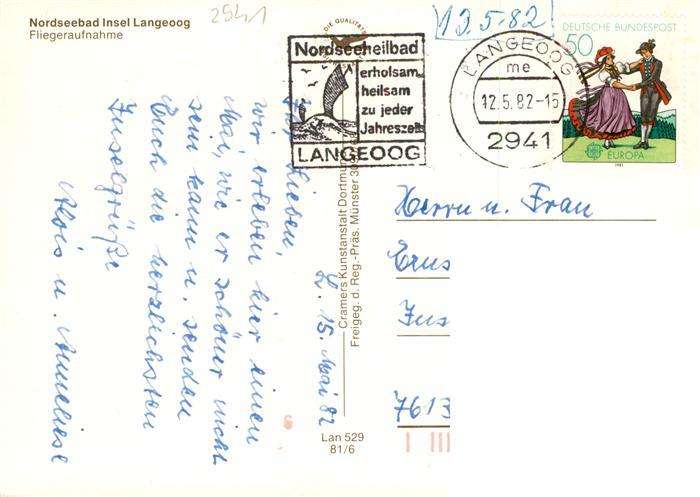 Nordseebad Insel Langeoog
Fliegeraufnahme
2941
12.5.82
DIE QUALITÄTS
Nordseeheilbad
erholsam
heilsam
zu jeder
Jahreszeit
LANGEOOG
LANGEOOG
me
12.5.82-15
2941
DEUTSCHE BUNDESPOST
50
EUROPA
1981
L. 15. Mai 82
Ihr Lieben,
wir erleben hier einen
Mai, wie er schöner nicht
sein kann u. senden
Euch die herzlichsten
Inselgrüße
Alois u. Anneliese
Cramers Kunstanstalt Dortmund
Freigeg. d. Reg.-Präs. Münster
Lan 529
81/6
Herrn u. Frau
Erns
Jus
7613